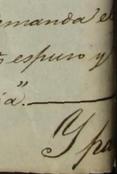 emanda e
s espurio y
ia".
Y pa